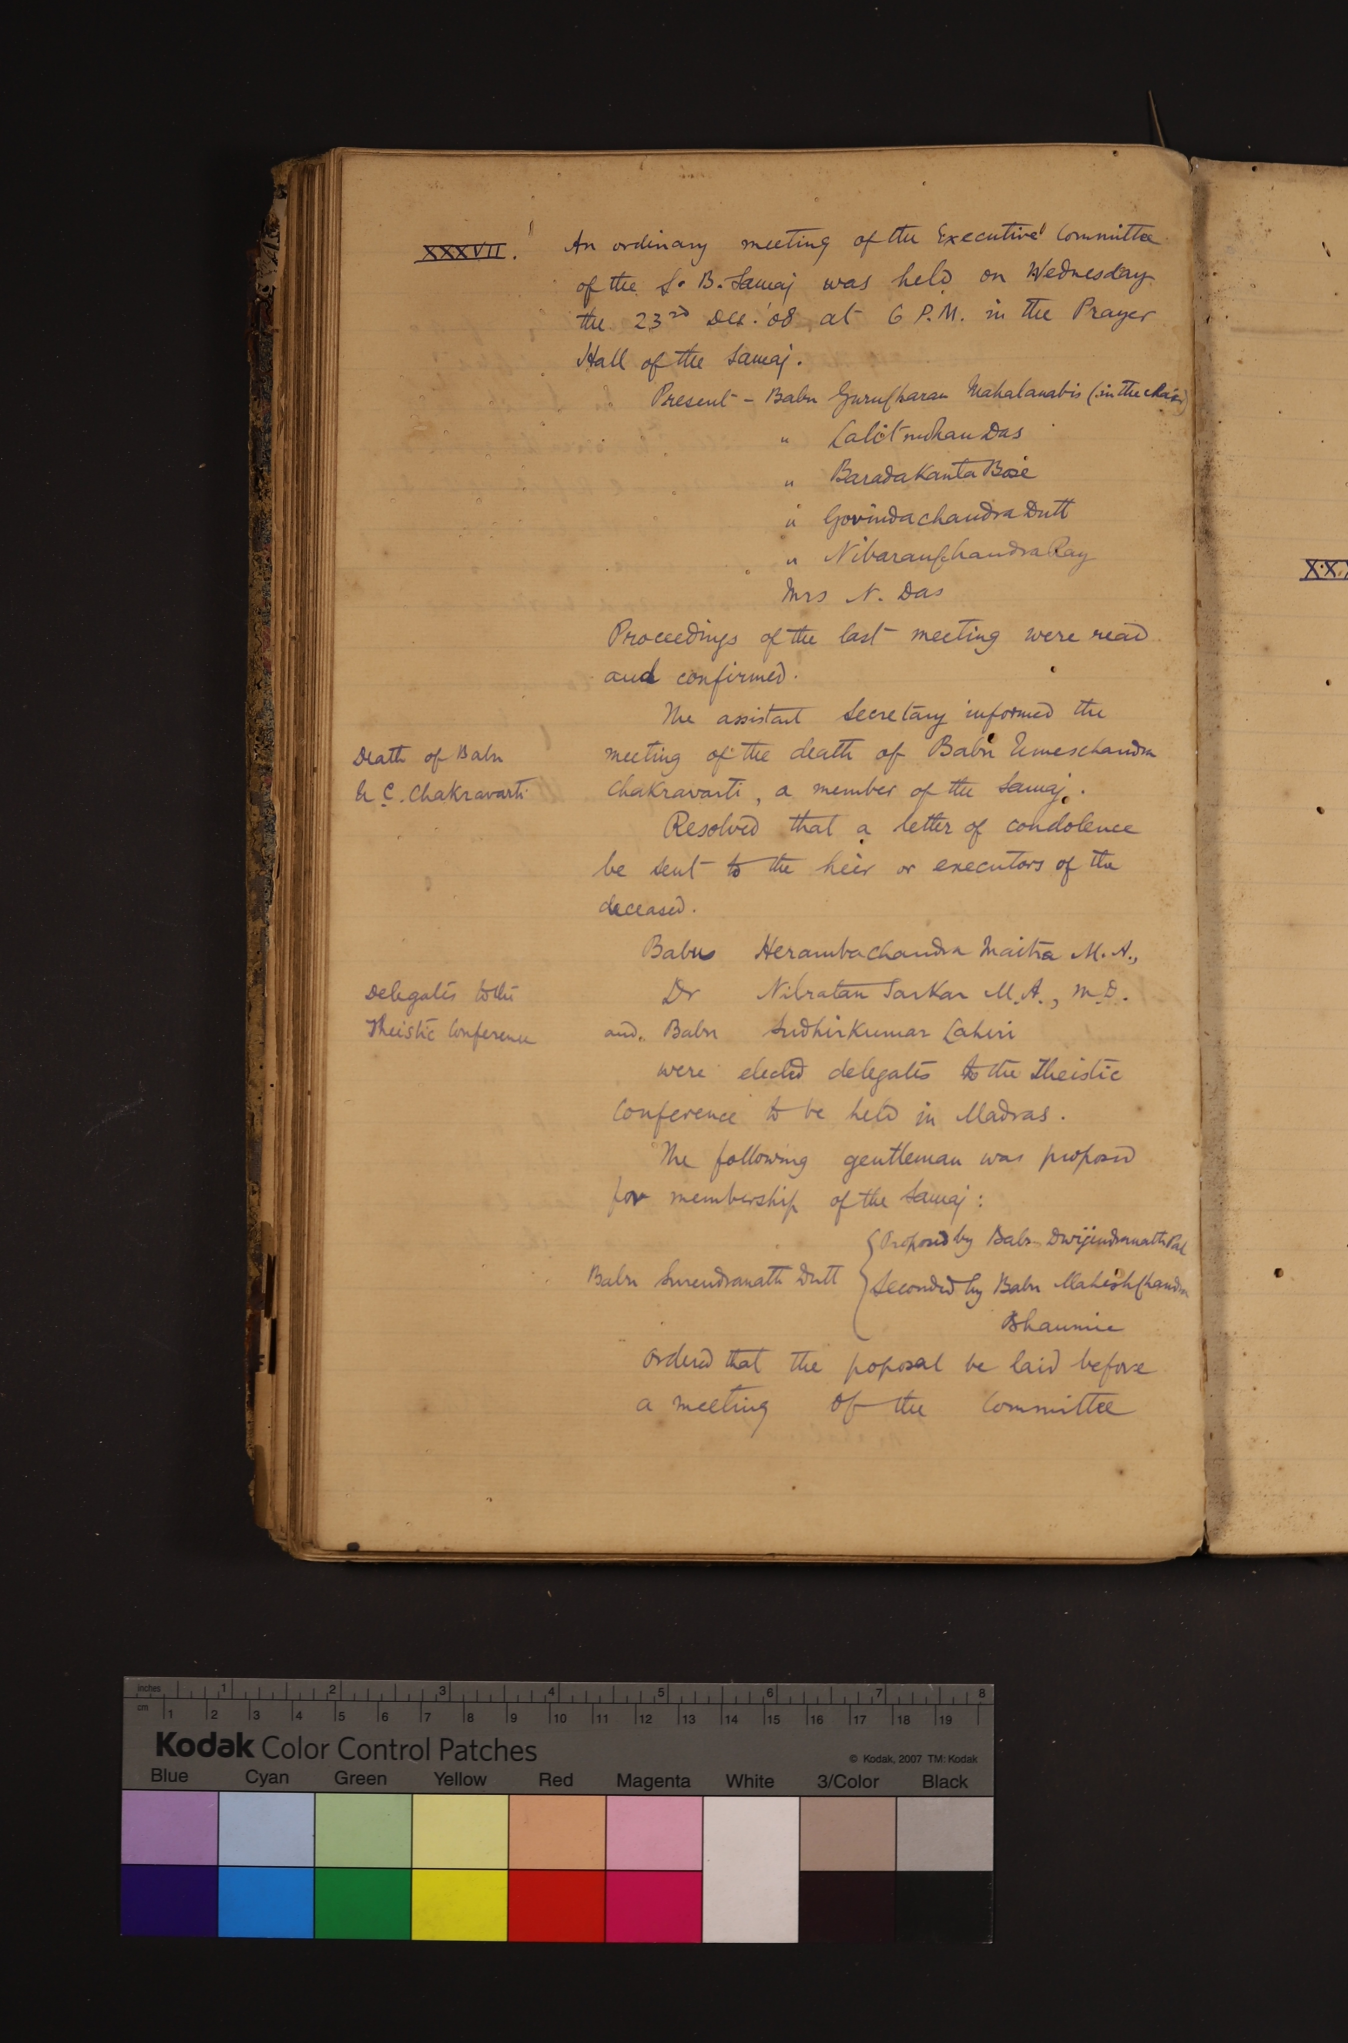 XXXVII. An ordinary meeting of the Executive Committee
of the S. B. Samaj was held on Wednesday
the 23rd Dec. '08 at 6 P.M. in the Prayer
Hall of the Samaj.
Present - Babu Gurucharan Mahalanabis (in the chair)
" Lalitmohan Das
" Baradakanta Bose
" Govindachandra Dutt
" Nibaranchandra Ray
Mrs N. Das
Proceedings of the last meeting were read
and confirmed.
The assistant Secretary informed the
Death of Babu
U. C. Chakravarti
meeting of the death of Babu Umeschandra
Chakravarti, a member of the Samaj.
Resolved that a letter of condolence
be sent to the heir or executors of the
deceased.
Babus Herambachandra Maitra M.A.,
Delegates to the
Theistic Conference
Dr Nilratan Sarkar M.A., M.D.
and Babu Sudhirkumar Lahiri
were elected delegates to the Theistic
Conference to be held in Madras.
The following gentleman was proposed
for membership of the Samaj:
Babu Surendranath Dutt
Proposed by Babu Dwijendranath Pal
Seconded by Babu Maheshchandra
Bhaumic
Ordered that the poposal be laid before
a meeting of the Committee
XX
inches 1 2 3 4 5 6 7 8
cm 1 2 3 4 5 6 7 8 9 10 11 12 13 14 15 16 17 18 19
Kodak Color Control Patches
© Kodak, 2007 TM: Kodak
Blue Cyan Green Yellow Red Magenta White 3/Color Black